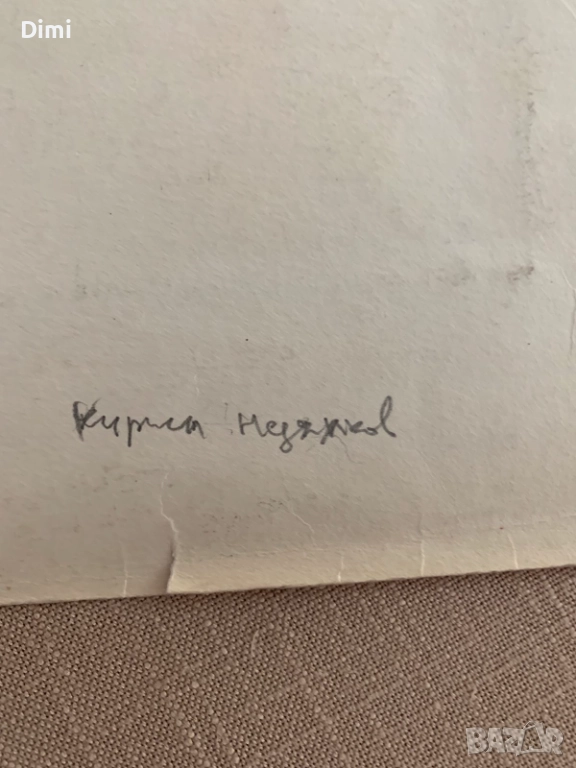 Dimi
Кирил Недялков
BAZAR